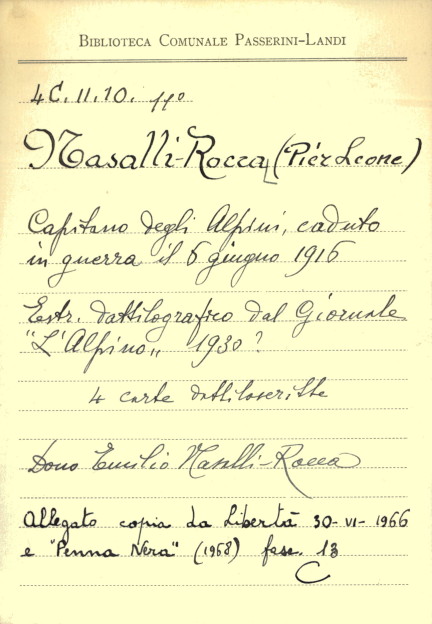 BIBLIOTECA COMUNALE PASSERINI-LANDI
4C.11.10. 11º
Nasalli-Rocca (Pier Leone)
Capitano degli Alpini, caduto
in guerra il 6 giugno 1916
Estr. dattilografico dal Giornale
"L'Alpino„ 1930?
4 carte dattiloscritte
Dono Emilio Nasalli-Rocca
Allegato copia da Libertà 30-VI-1966
e "Penna Nera" (1968) fasc. 13
C